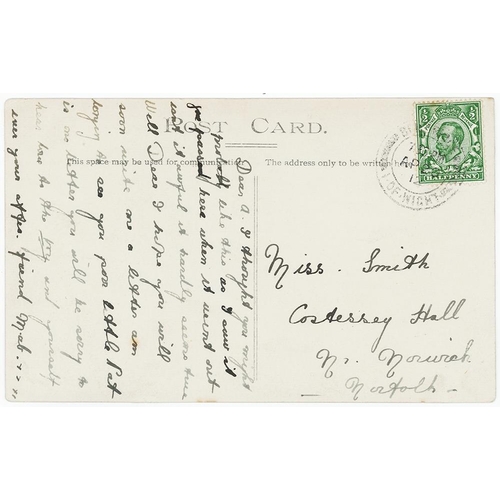 POST CARD.
This space may be used for communication.
The address only to be written here
HALFPENNY
I. OF WIGHT
Miss. Smith
Costessey Hall
Nr. Norwich
Norfolk
Dear A. I thought you might
probably like this as I saw it
go passed here when it went out
isn't it awful it hardly seems true
Well Dear I hope you will
soon write me a letter am
longing to see you poor little Pat
is no better you will be sorry to
hear love to the boy and yourself
ever your affec. friend Mab.